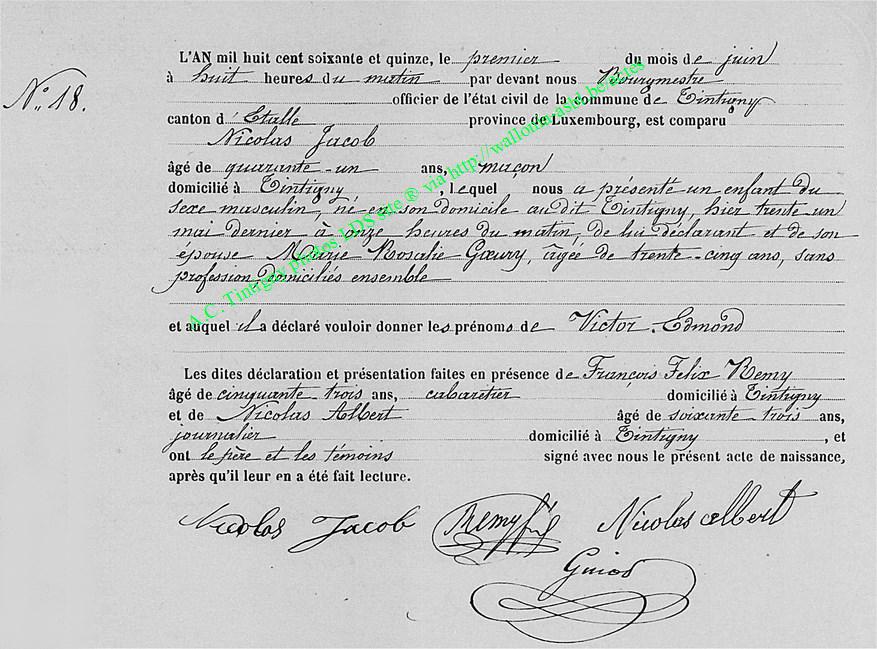 N.o 18.
L'AN mil huit cent soixante et quinze, le premier du mois de juin
à huit heures du matin par devant nous Bourgmestre
officier de l'état civil de la commune de Tintigny
canton d'Etalle province de Luxembourg, est comparu
Nicolas Jacob
âgé de quarante-un ans, maçon
domicilié à Tintigny, lequel nous a présenté un enfant du
sexe masculin, né en son domicile au dit Tintigny, hier trente un
mai dernier à onze heures du matin, de lui déclarant et de son
épouse Marie Rosalie Goeury, âgée de trente-cinq ans, sans
profession, domiciliés ensemble
et auquel il a déclaré vouloir donner les prénoms de Victor-Edmond
Les dites déclaration et présentation faites en présence de François Felix Remy
âgé de cinquante trois ans, cabaretier domicilié à Tintigny
et de Nicolas Albert âgé de soixante trois ans,
journalier domicilié à Tintigny, et
ont le père et les témoins signé avec nous le présent acte de naissance,
après qu'il leur en a été fait lecture.
Nicolas Jacob Remy fé Nicolas Albert
A.C. Tintigny photos LDS site ® via http://wallonia-asbl.be/actes